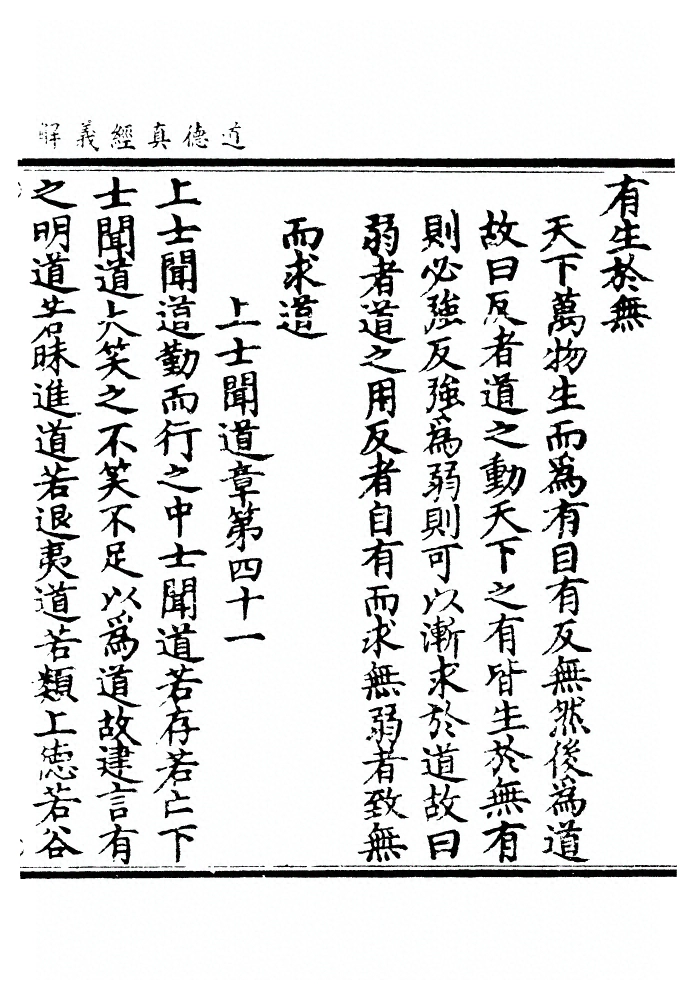 道德真經義解
有生於無
天下萬物生而爲有目有反無然後爲道
故曰反者道之動天下之有皆生於無有
則必強反強爲弱則可以漸求於道故曰
弱者道之用反者自有而求無弱者致無
而求道
上士聞道章第四十一
上士聞道勤而行之中士聞道若存若亡下
士聞道大笑之不笑不足以爲道故建言有
之明道若昧進道若退夷道若類上德若谷